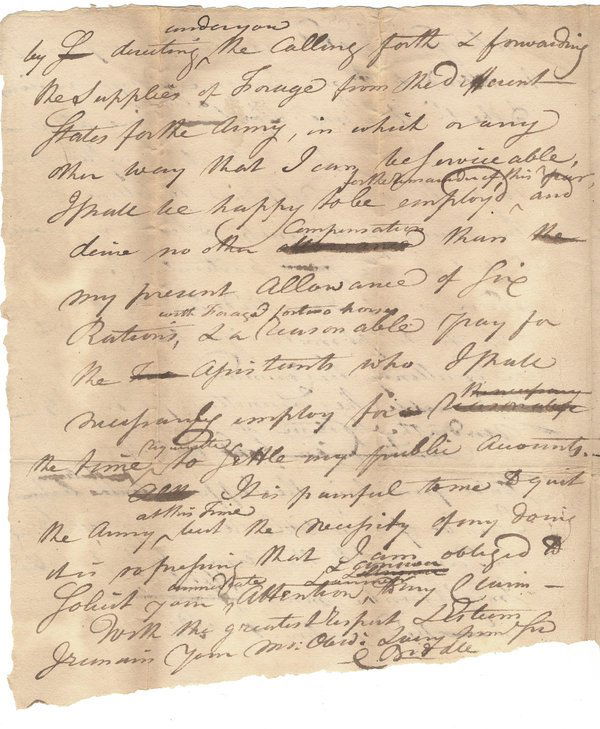 under you
by directing the Calling forth & forwarding
the Supplies of Forage from the Different
States for the Army, in which or any
other way that I can be Serviceable,
for the remainder of this Year,
I shall be happy to be employ'd and
Compensation
desire no other than the
my present Allowance of Six
with Forage for two horses
Rations, & a reasonable pay for
the Assistants who I shall
the necessary
necessarily employ for reasonable
requisite
the time to settle my public Accounts.
It is painful to me to quit
at this Time
the Army, but the necessity of my doing
it is so pressing that I am obliged to
immediate
Solicit your Attention to my Claim —
With the greatest respect & Esteem
I remain Your mo: Obed: & very hum Sr
C Biddle